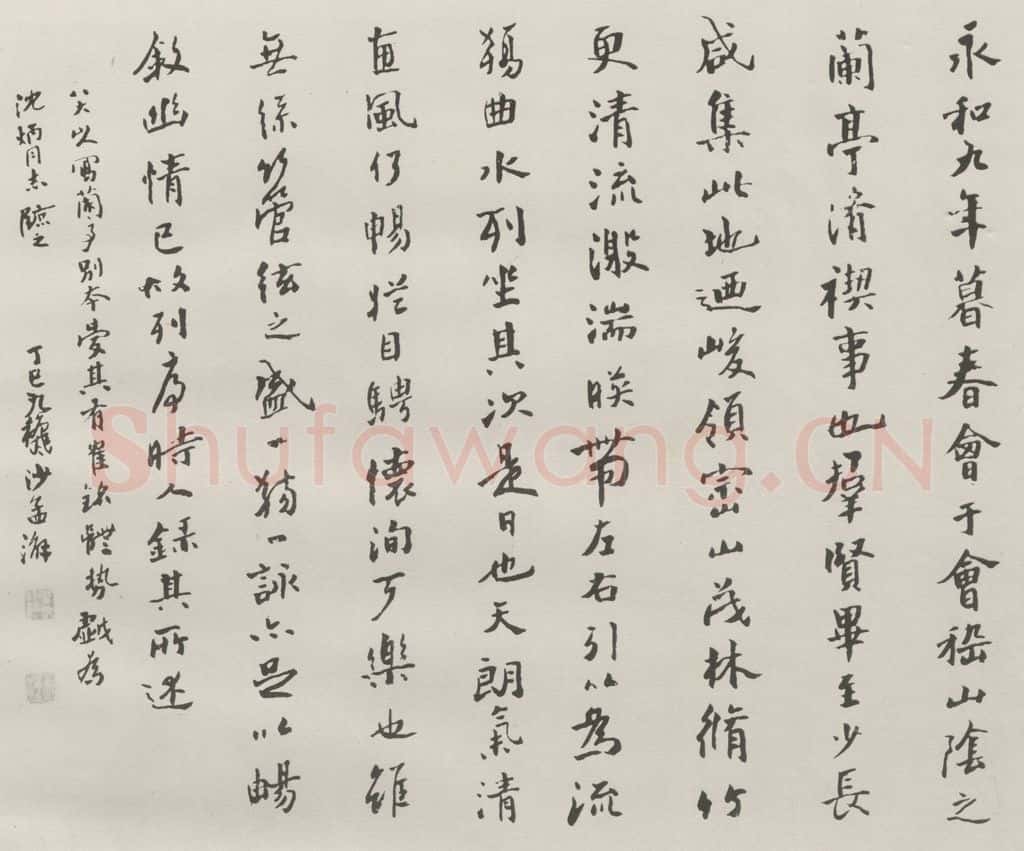 永和九年暮春會于會嵇山陰之
蘭亭禊事也羣賢畢至少長
咸集此地迺峻領崇山茂林脩竹
更清流激湍暎帶左右引以為流
觴曲水列坐其次是日也天朗氣清
惠風和暢娛目騁懷洵可樂也雖
無絲竹管絃之盛一觴一詠亦足以暢
敘幽情已故列序時人錄其所述
八大寫蘭亭別本愛其有體勢戲為
沈炳同志臨之
丁巳九龝沙孟海
Shufawang.CN